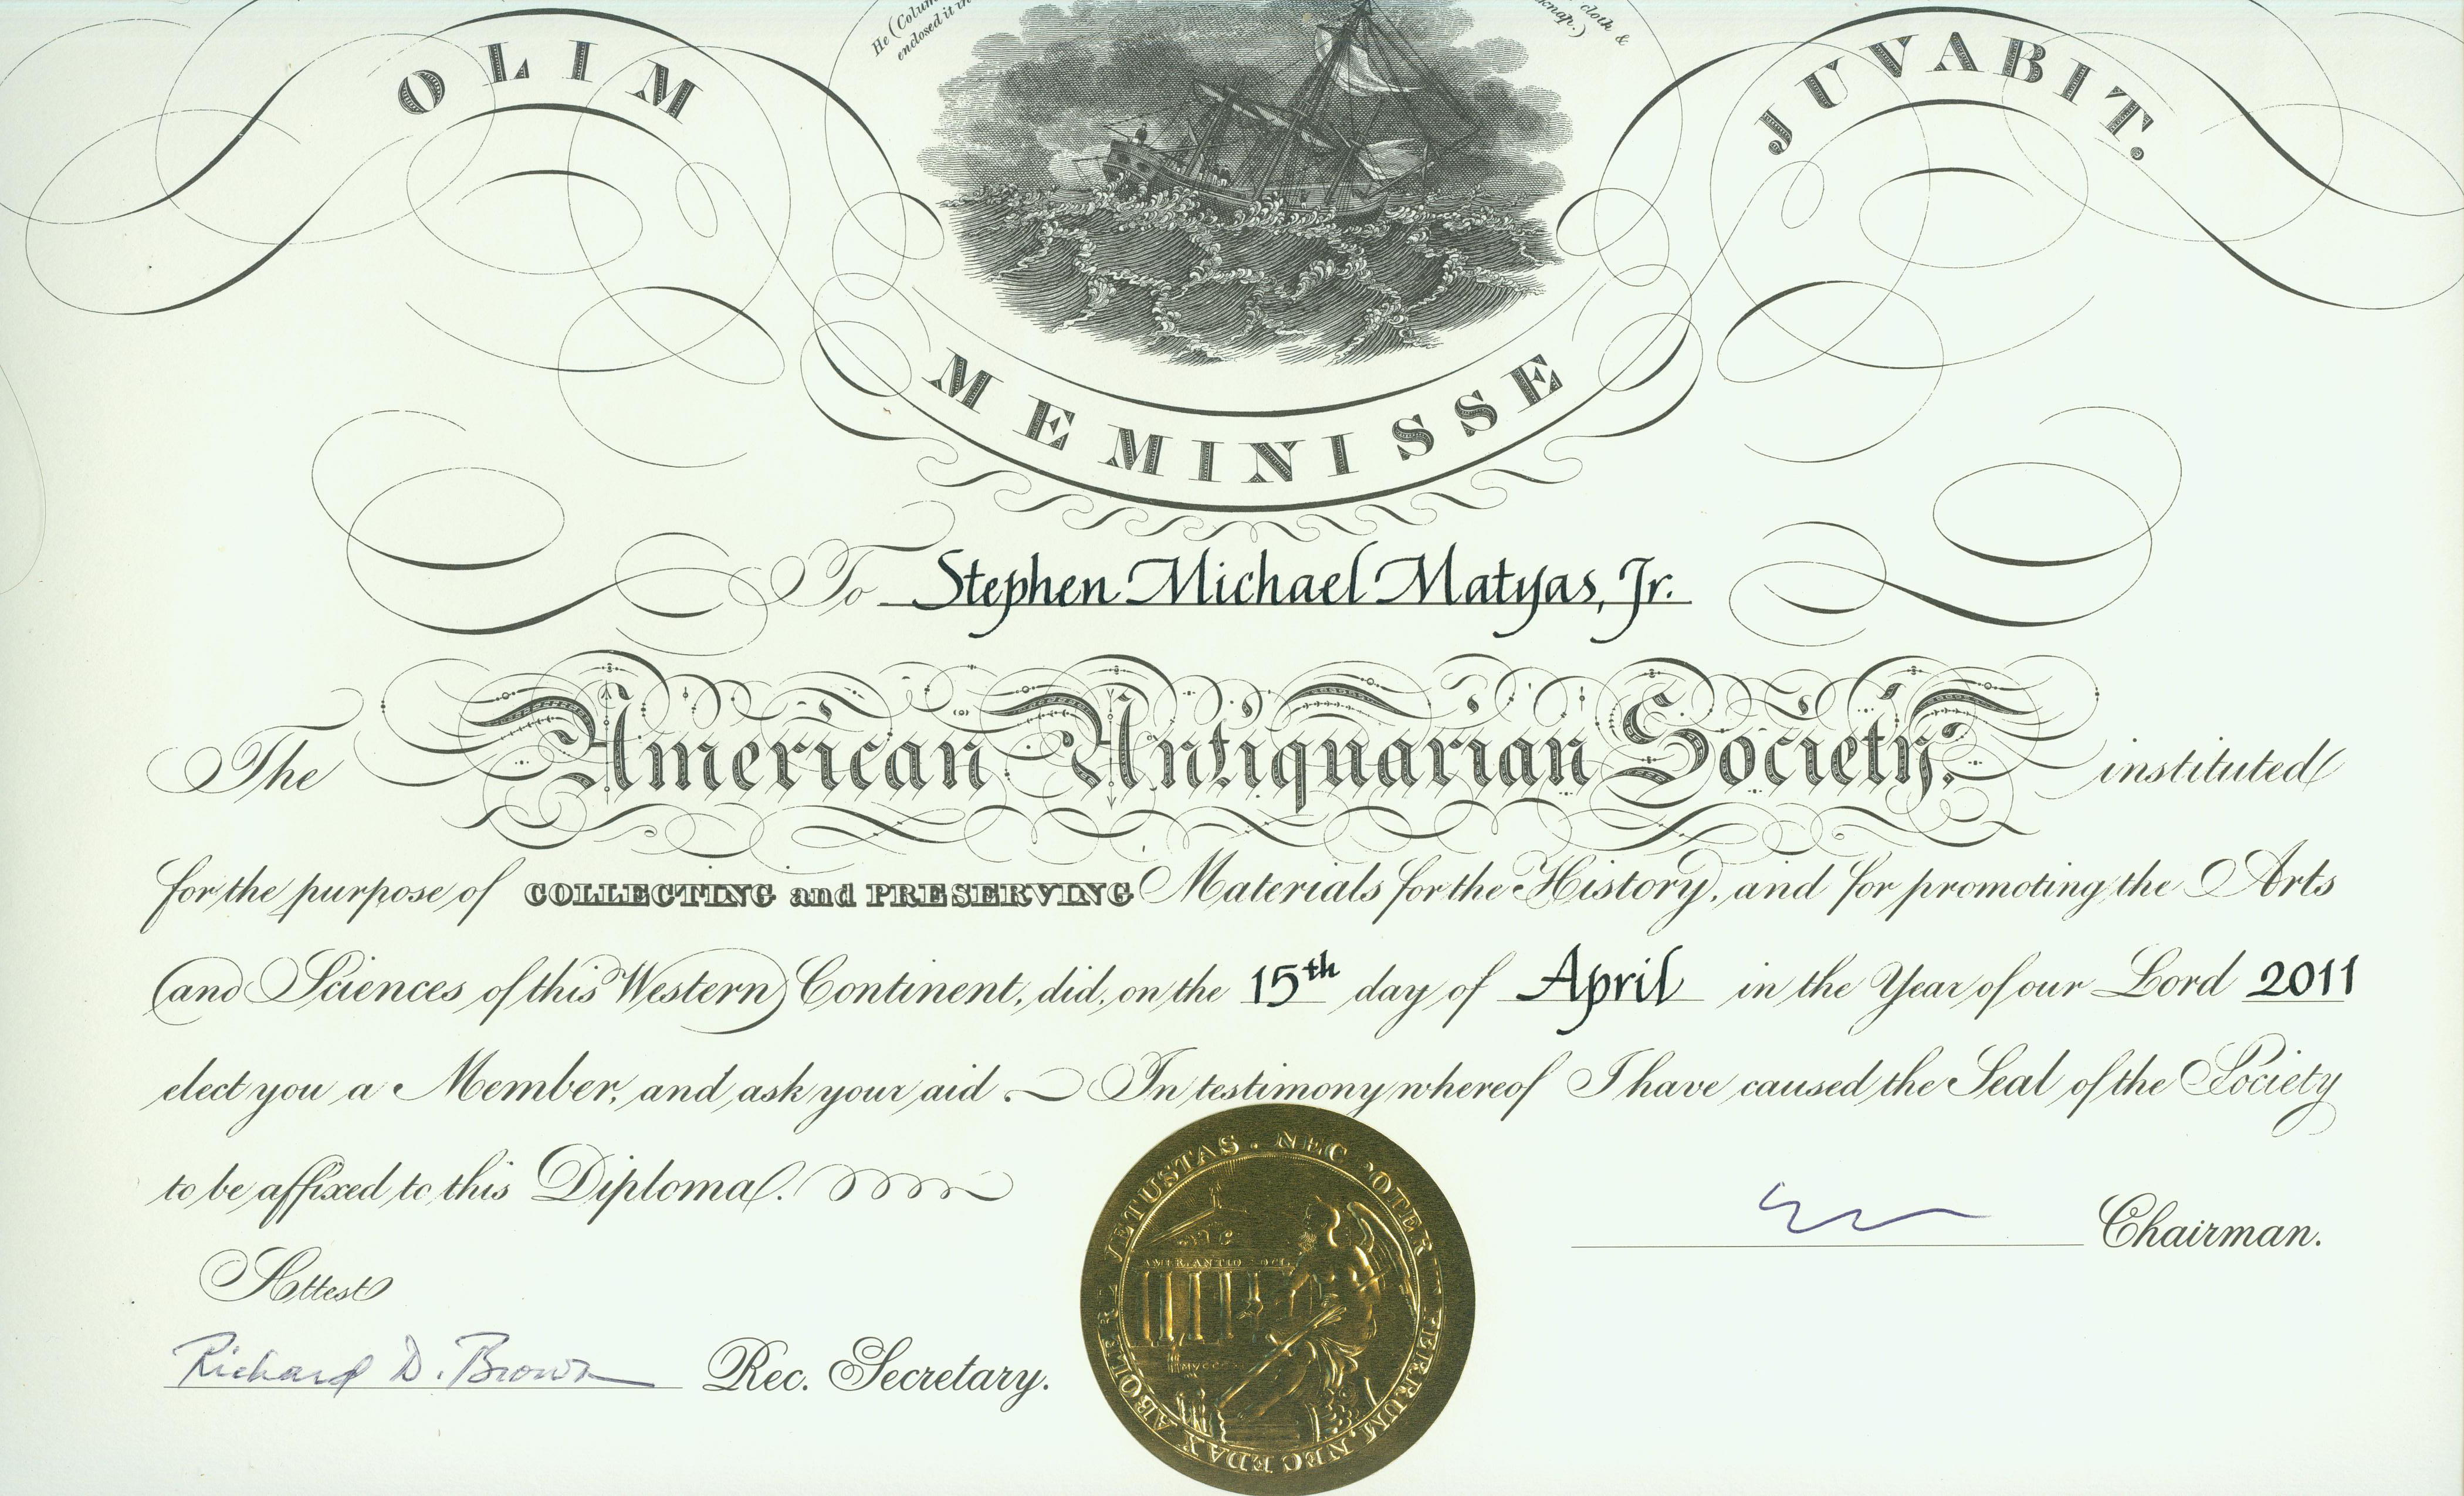 He (Colum
enclosed it in
cloth &
knap.)
OLIM
JUVABIT.
MEMINISSE
To Stephen Michael Matyas, Jr.
The American Antiquarian Society, instituted
for the purpose of COLLECTING and PRESERVING Materials for the History, and for promoting the Arts
and Sciences of this Western Continent, did, on the 15th day of April in the Year of our Lord 2011
elect you a Member, and ask your aid. In testimony whereof I have caused the Seal of the Society
to be affixed to this Diploma.
Chairman.
Attest
Richard D. Brown Rec. Secretary.
VETUSTAS. NEC POTERIT FERRUM, NEC EDAX ABOLERE